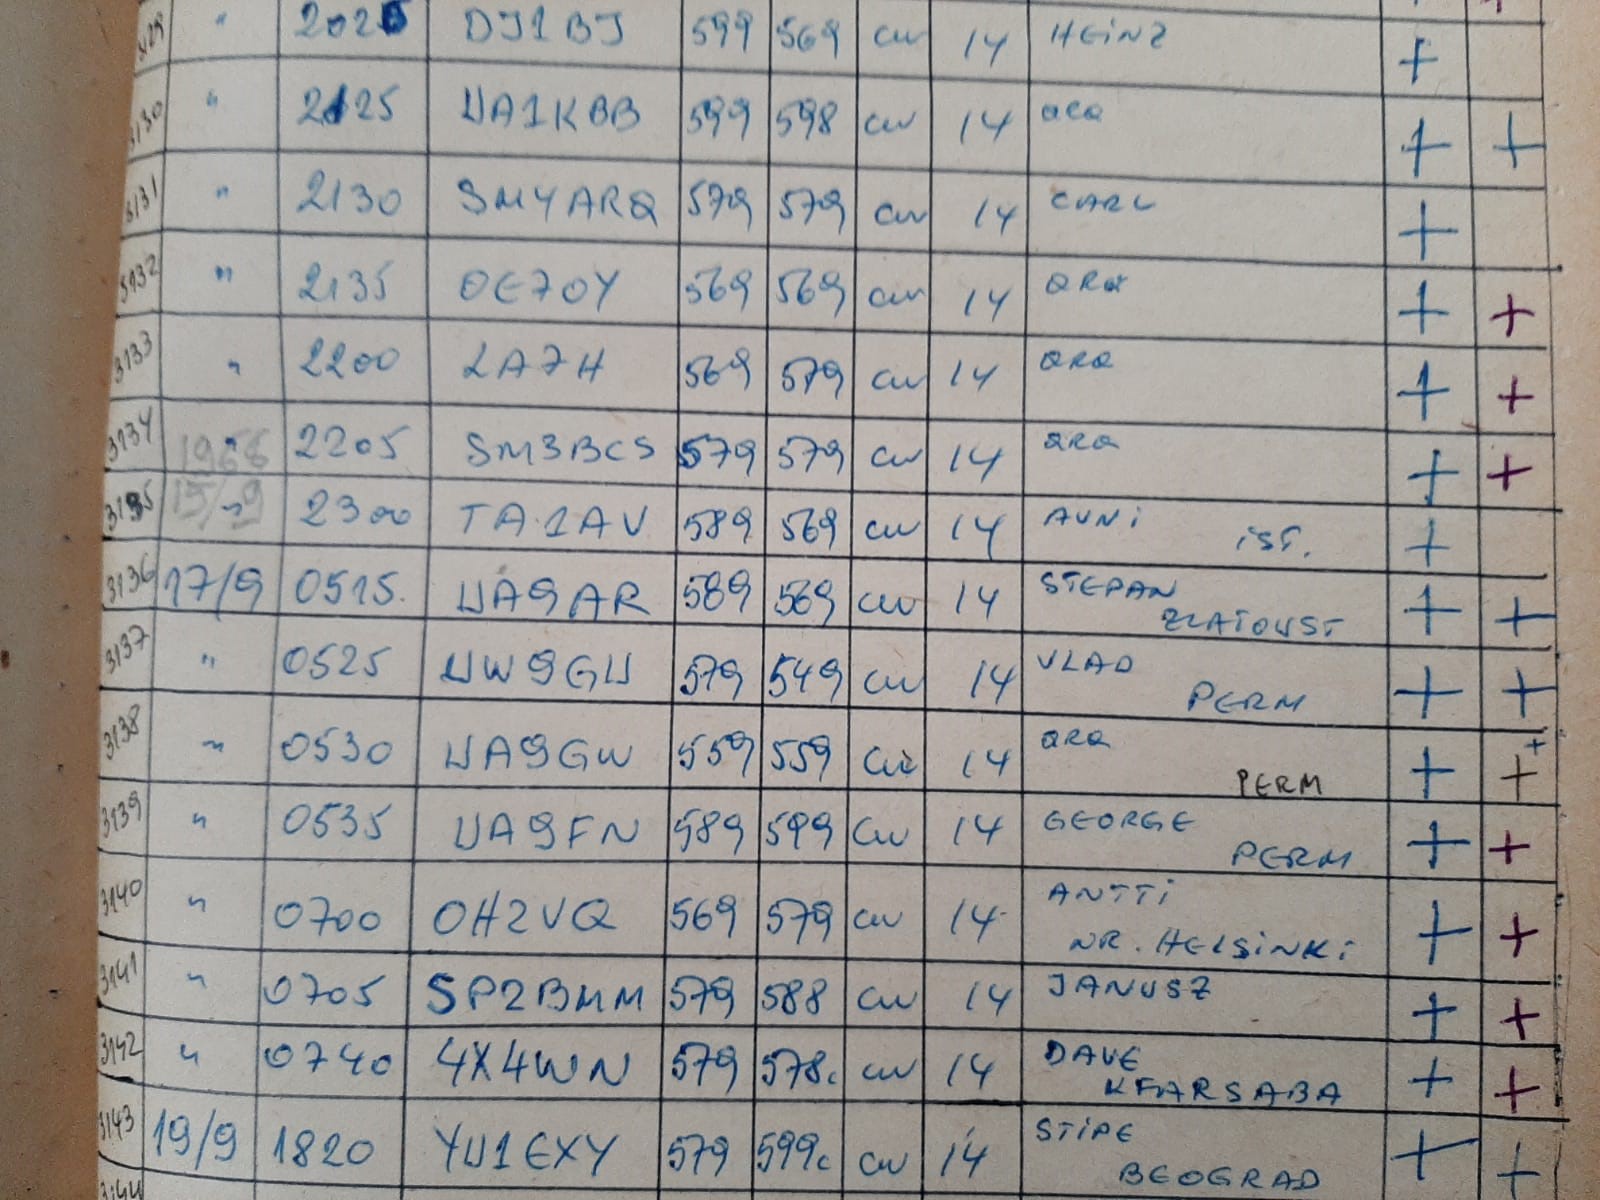 3129 " 2025 DJ1BJ 599 569 cw 14 HEINZ +
3130 " 2125 UA1KBB 599 598 cw 14 QRQ + +
3131 " 2130 SM4ARQ 579 579 cw 14 CARL +
3132 " 2135 OE7OY 569 569 cw 14 QRQ + +
3133 " 2200 LA7H 569 579 cw 14 QRQ + +
3134 1966 2205 SM3BCS 579 579 cw 14 QRQ + +
3135 15/9 2300 TA1AV 589 569 cw 14 AVNI IST. +
3136 17/9 0515. UA9AR 589 569 cw 14 STEPAN ZLATOUST + +
3137 " 0525 UW9GU 579 549 cw 14 VLAD PERM + +
3138 " 0530 UA9GW 559 559 cw 14 QRQ PERM + + +
3139 " 0535 UA9FN 589 599 cw 14 GEORGE PERM + +
3140 " 0700 OH2VQ 569 579 cw 14 ANTTI NR. HELSINKI + +
3141 " 0705 SP2BMM 579 588 cw 14 JANUSZ + +
3142 " 0740 4X4WN 579 578c cw 14 DAVE KFARSABA + +
3143 19/9 1820 YU1EXY 579 599c cw 14 STIPE BEOGRAD + +
3144